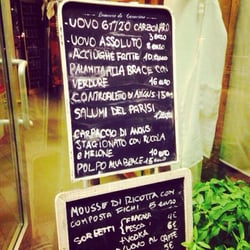 -UOVO 61°/20 CARBONARO
-UOVO ASSOLUTO 8 EURO
-ACCIUGHE FRITTE 10 EURO
-PALAMITA ALLA BRACE CON
VERDURE 16 EURO
-CONTROFILETTO DI ANGUS 15 EURO
SALUMI DEL PARISI
CARPACCIO DI ANGUS
STAGIONATO CON RUCOLA
E MELONE
POLPO ALLA BRACE 16 EURO
MOUSSE DI RICOTTA CON
COMPOSTA FICHI 8 EURO
SORBETTI FRAGOLA 4€
PESCA 4€
+VODKA 6€
-UOVO AL CAFFÈ